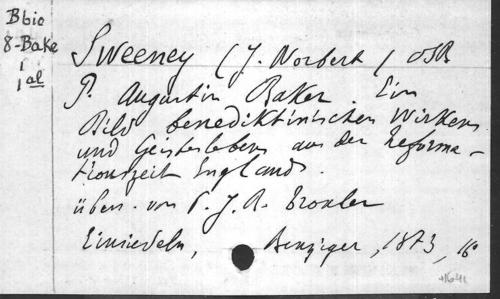 Bbio
8-Bake
1
1al
Sweeney (J. Norbert) OSB
P. Augustin Baker. Ein
Bild benediktinischen Wirkens
und Geisteslebens aus der Reforma-
tionszeit Englands.
übers. von P. J. A. Troxler
Einsiedeln, Benziger, 1873, 16°